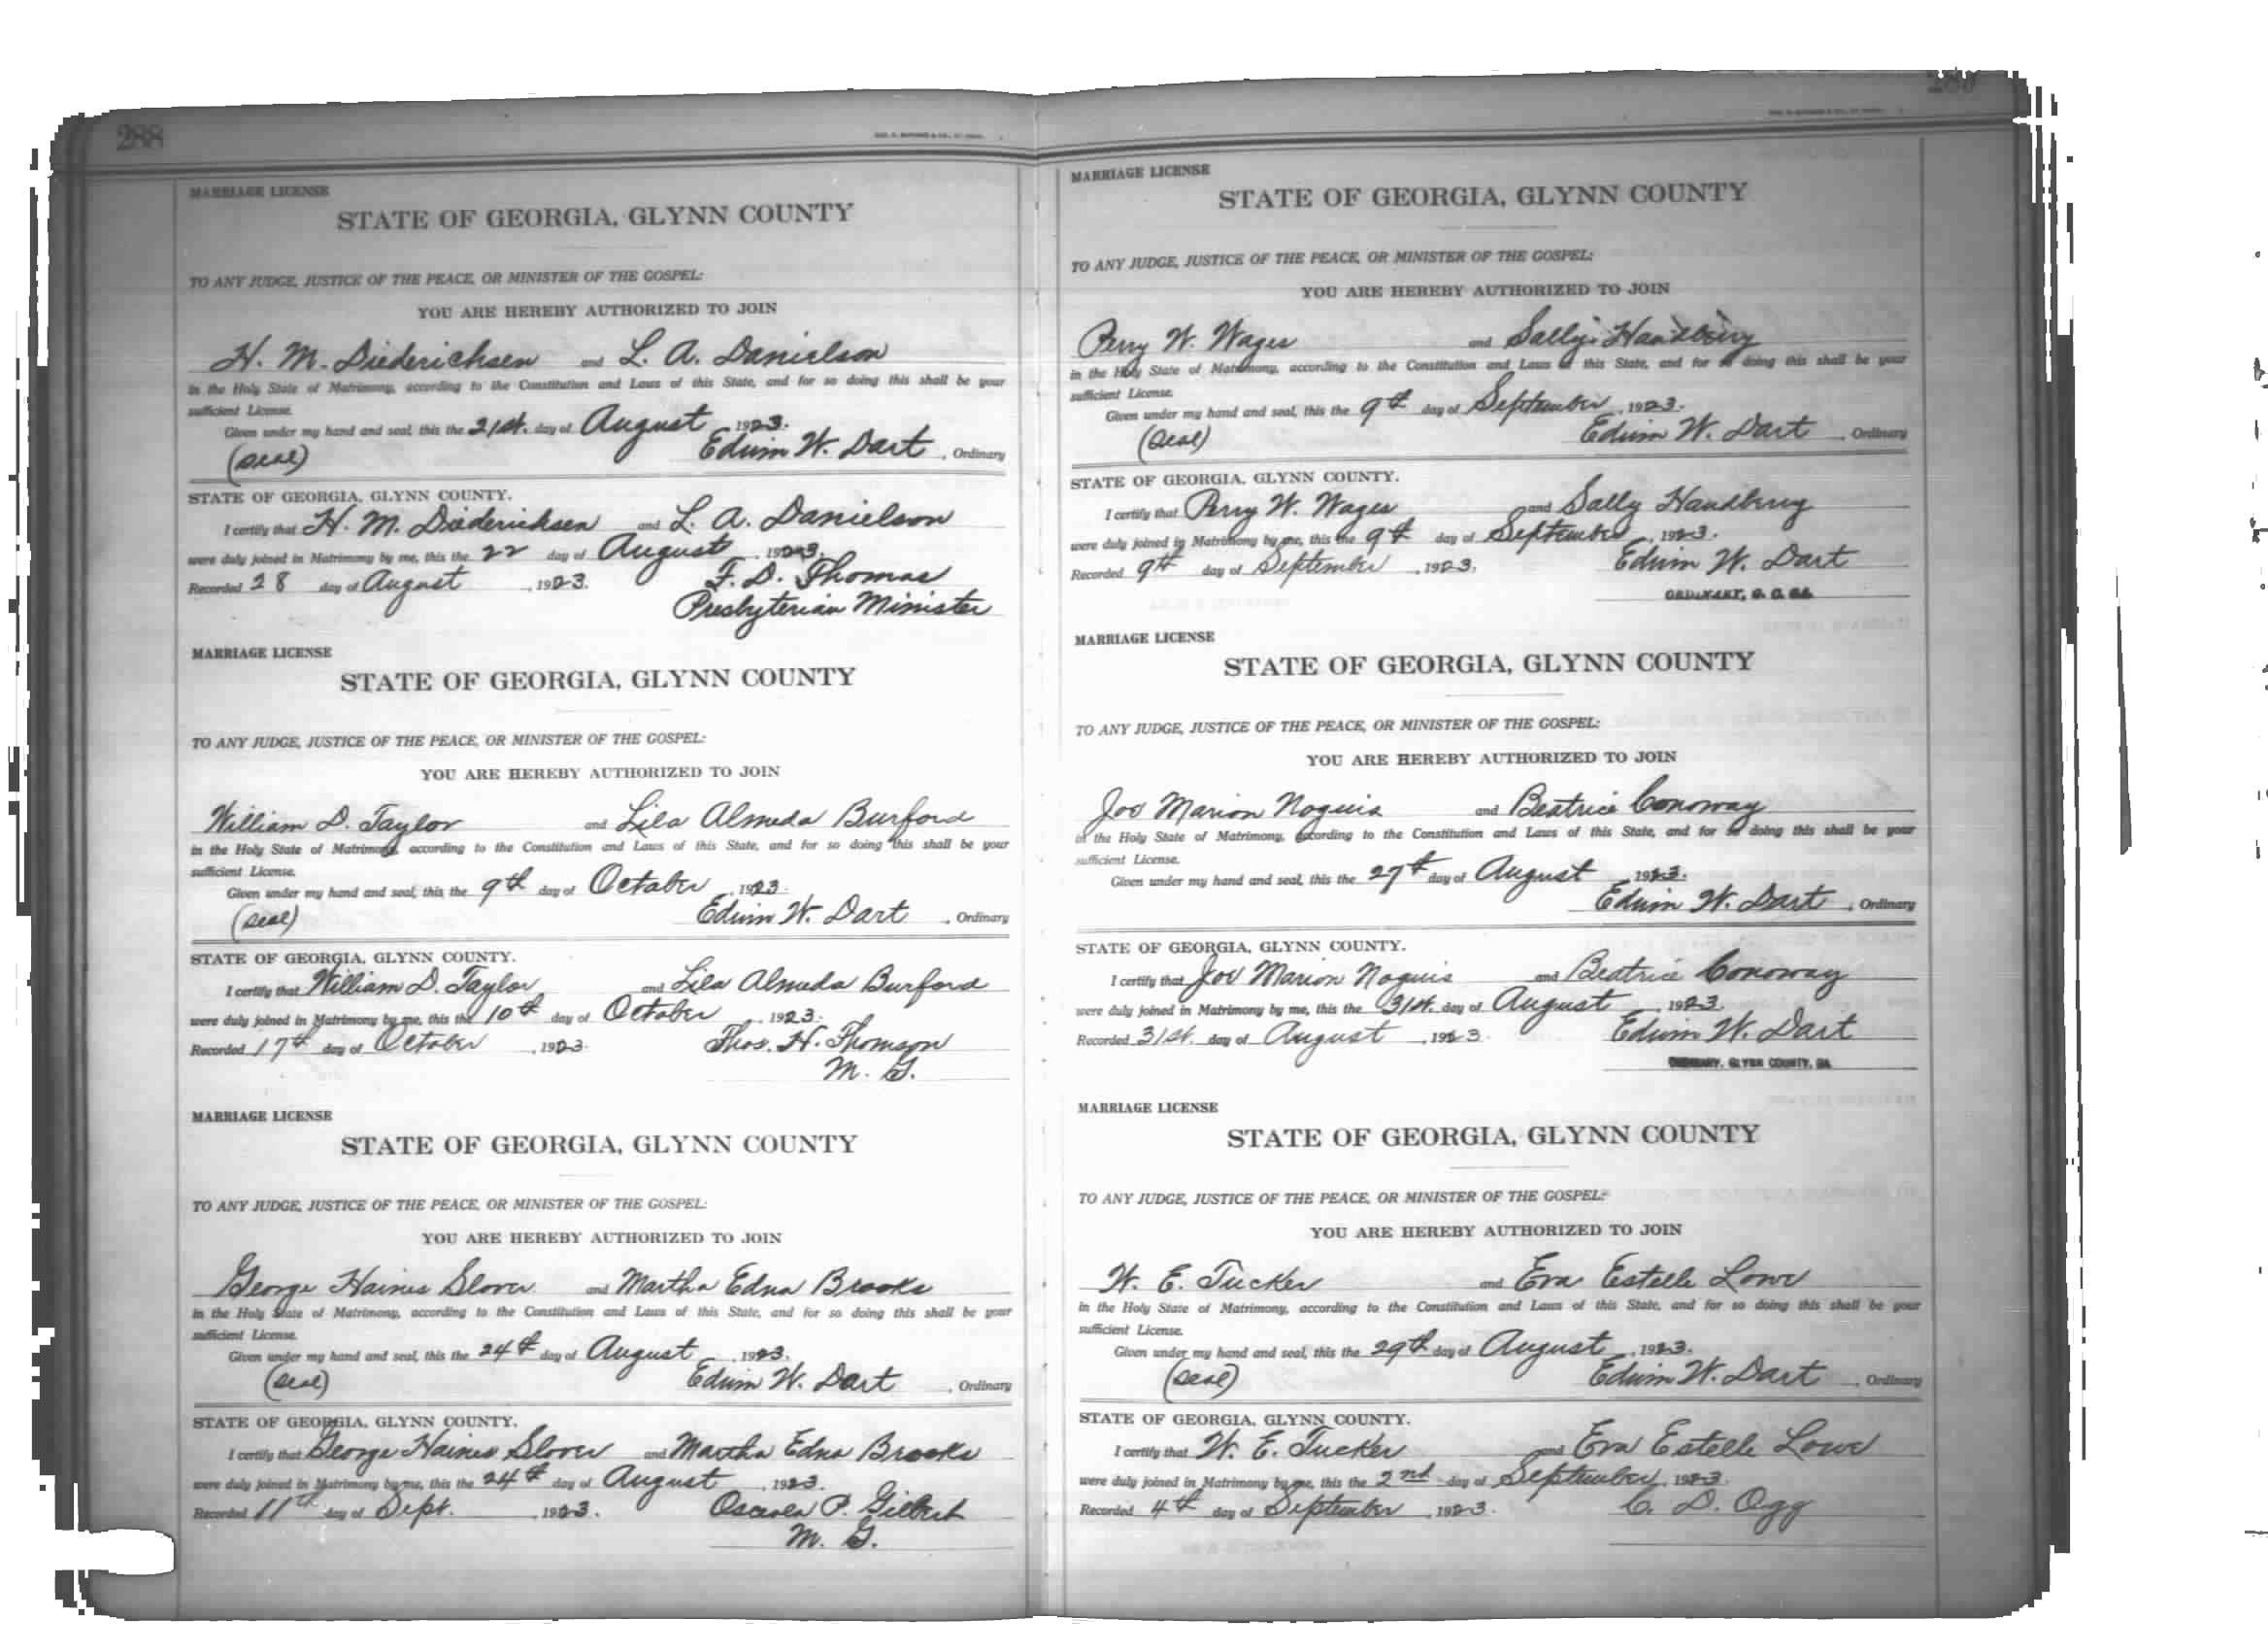 288
MARRIAGE LICENSE
STATE OF GEORGIA, GLYNN COUNTY
TO ANY JUDGE, JUSTICE OF THE PEACE, OR MINISTER OF THE GOSPEL:
YOU ARE HEREBY AUTHORIZED TO JOIN
H. M. Diederichsen and L. A. Danielson
in the Holy State of Matrimony, according to the Constitution and Laws of this State, and for so doing this shall be your
sufficient License.
Given under my hand and seal, this the 21st. day of August, 1923.
(Seal) Edwin W. Dart, Ordinary
STATE OF GEORGIA, GLYNN COUNTY.
I certify that H. M. Diederichsen and L. A. Danielson
were duly joined in Matrimony by me, this the 22 day of August, 1923.
Recorded 28 day of August, 1923. F. D. Thomas
Presbyterian Minister
MARRIAGE LICENSE
STATE OF GEORGIA, GLYNN COUNTY
TO ANY JUDGE, JUSTICE OF THE PEACE, OR MINISTER OF THE GOSPEL:
YOU ARE HEREBY AUTHORIZED TO JOIN
William D. Taylor and Lila Almeda Burford
in the Holy State of Matrimony, according to the Constitution and Laws of this State, and for so doing this shall be your
sufficient License.
Given under my hand and seal, this the 9th day of October, 1923.
(Seal) Edwin W. Dart, Ordinary
STATE OF GEORGIA, GLYNN COUNTY.
I certify that William D. Taylor and Lila Almeda Burford
were duly joined in Matrimony by me, this the 10th day of October, 1923.
Recorded 17th day of October, 1923. Thos. H. Thomson
M. G.
MARRIAGE LICENSE
STATE OF GEORGIA, GLYNN COUNTY
TO ANY JUDGE, JUSTICE OF THE PEACE, OR MINISTER OF THE GOSPEL:
YOU ARE HEREBY AUTHORIZED TO JOIN
George Haines Slover and Martha Edna Brooks
in the Holy State of Matrimony, according to the Constitution and Laws of this State, and for so doing this shall be your
sufficient License.
Given under my hand and seal, this the 24th day of August, 1923.
(Seal) Edwin W. Dart, Ordinary
STATE OF GEORGIA, GLYNN COUNTY.
I certify that George Haines Slover and Martha Edna Brooks
were duly joined in Matrimony by me, this the 24th day of August, 1923.
Recorded 11th day of Sept., 1923. Osceola P. Gilbert
M. G.
MARRIAGE LICENSE
STATE OF GEORGIA, GLYNN COUNTY
TO ANY JUDGE, JUSTICE OF THE PEACE, OR MINISTER OF THE GOSPEL:
YOU ARE HEREBY AUTHORIZED TO JOIN
Perry W. Wages and Sally Handbery
in the Holy State of Matrimony, according to the Constitution and Laws of this State, and for so doing this shall be your
sufficient License.
Given under my hand and seal, this the 9th day of September, 1923.
(Seal) Edwin W. Dart, Ordinary
STATE OF GEORGIA, GLYNN COUNTY.
I certify that Perry W. Wages and Sally Handbery
were duly joined in Matrimony by me, this the 9th day of September, 1923.
Recorded 9th day of September, 1923. Edwin W. Dart
ORDINARY, G. C. GA.
MARRIAGE LICENSE
STATE OF GEORGIA, GLYNN COUNTY
TO ANY JUDGE, JUSTICE OF THE PEACE, OR MINISTER OF THE GOSPEL:
YOU ARE HEREBY AUTHORIZED TO JOIN
Joe Marion Noguis and Beatrice Conoway
in the Holy State of Matrimony, according to the Constitution and Laws of this State, and for so doing this shall be your
sufficient License.
Given under my hand and seal, this the 27th day of August 1923.
Edwin W. Dart, Ordinary
STATE OF GEORGIA, GLYNN COUNTY.
I certify that Joe Marion Noguis and Beatrice Conoway
were duly joined in Matrimony by me, this the 31st. day of August, 1923.
Recorded 31st. day of August, 1923. Edwin W. Dart
ORDINARY, GLYNN COUNTY, GA.
MARRIAGE LICENSE
STATE OF GEORGIA, GLYNN COUNTY
TO ANY JUDGE, JUSTICE OF THE PEACE, OR MINISTER OF THE GOSPEL:
YOU ARE HEREBY AUTHORIZED TO JOIN
W. E. Tucker and Eva Estelle Lowe
in the Holy State of Matrimony, according to the Constitution and Laws of this State, and for so doing this shall be your
sufficient License.
Given under my hand and seal, this the 29th day of August, 1923.
(Seal) Edwin W. Dart, Ordinary
STATE OF GEORGIA, GLYNN COUNTY.
I certify that W. E. Tucker and Eva Estelle Lowe
were duly joined in Matrimony by me, this the 2nd day of September, 1923.
Recorded 4th day of September, 1923. C. D. Ogg